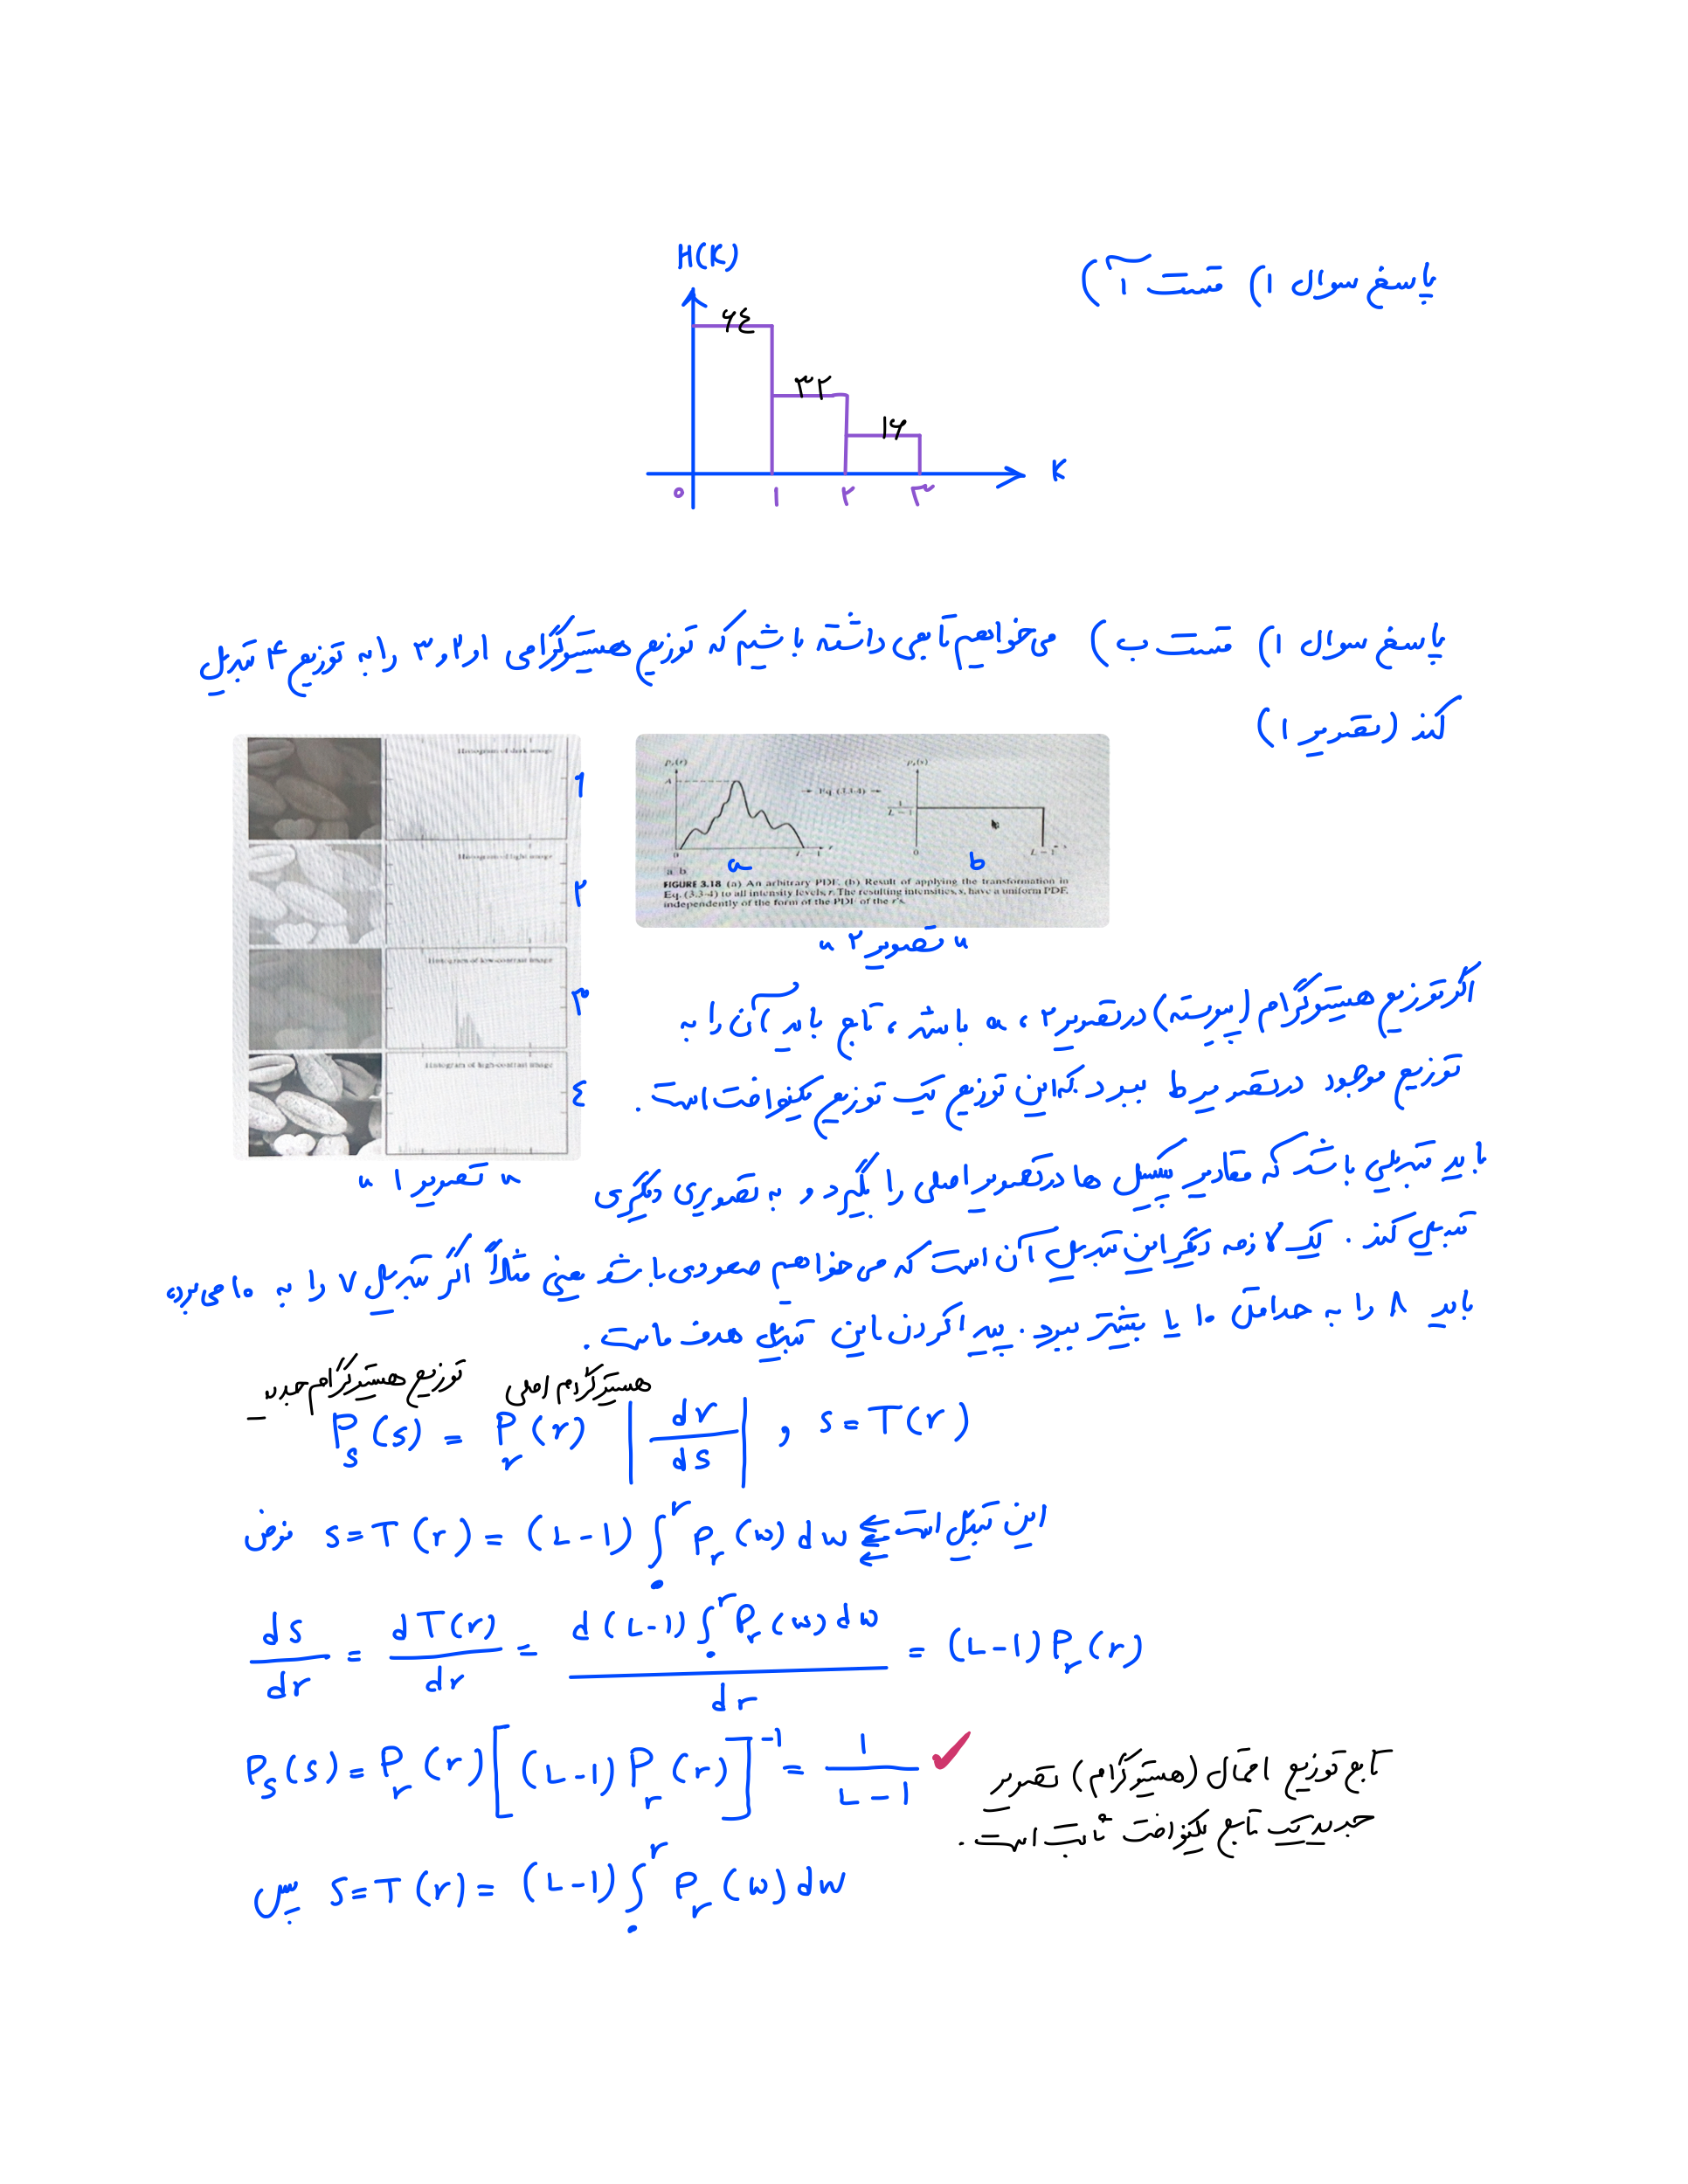 پاسخ سوال ۱) قسمت آ)
H(K)
۶٤
۳۲
۱۶
K
۰ ۱ ۲ ۳
پاسخ سوال ۱) قسمت ب) می‌خواهیم تابعی داشته باشیم که توزیع هیستوگرامی ۱و۲و۳ را به توزیع ۴ تبدیل
کند (تصویر ۱)
Histogram of dark image
۱
Histogram of light image
۲
Histogram of low-contrast image
۳
Histogram of high-contrast image
٤
"تصویر ۱"
Pr(r)
A
Eq. (3.3-4)
0 L-1 r
a
Ps(s)
1/(L-1)
0 L-1 s
b
a b
FIGURE 3.18 (a) An arbitrary PDF. (b) Result of applying the transformation in
Eq. (3.3-4) to all intensity levels, r. The resulting intensities, s, have a uniform PDF,
independently of the form of the PDF of the r's.
"تصویر ۲"
اگر توزیع هیستوگرام (پیوسته) در تصویر ۲، a باشد، تابع باید آن را به
توزیع موجود در تصویر b ببرد که این توزیع یک توزیع یکنواخت است.
باید تبدیلی باشد که مقادیر پیکسل ها در تصویر اصلی را بگیرد و به تصویری دیگری
تبدیل کند. یک لازمه دیگر این تبدیل آن است که می خواهیم صعودی باشد یعنی مثلاً اگر تبدیل ۷ را به ۱۰ می‌برد،
باید ۸ را به حداقل ۱۰ یا بیشتر ببرد. پیدا کردن این تبدیل هدف ماست.
توزیع هیستوگرام جدید هیستوگرام اصلی
Ps(s) = Pr(r) |dr/ds| , s = T(r)
فرض s = T(r) = (L-1) ∫₀^r Pr(w) dw این تبدیل است
ds/dr = dT(r)/dr = d(L-1)∫₀^r Pr(w)dw / dr = (L-1) Pr(r)
Ps(s) = Pr(r) [(L-1) Pr(r)]⁻¹ = 1/(L-1) ✓
تابع توزیع احتمال (هیستوگرام) تصویر
جدید یک تابع یکنواخت ثابت است.
پس s = T(r) = (L-1) ∫₀^r Pr(w) dw